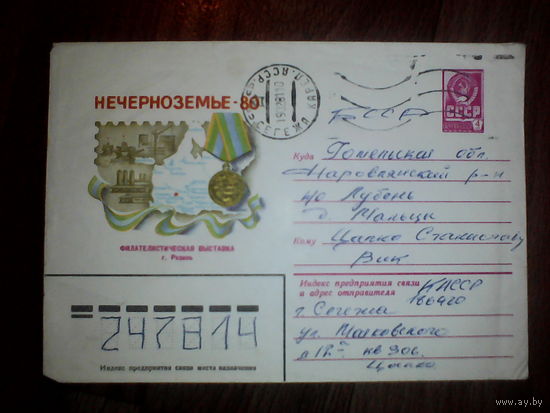 НЕЧЕРНОЗЕМЬЕ-80
ФИЛАТЕЛИСТИЧЕСКАЯ ВЫСТАВКА
г. Рязань
СЕГЕЖА
СССР
4
БССР
Куда Гомельская обл.
Наровлянский р-н
п/о Лубень
д. Мальцы
Кому Цапко Станиславу
Вик
Индекс предприятия связи
и адрес отправителя КАССР
г. Сегежа
ул. Маяковского
кв 306.
Цапко
247814
Индекс предприятия связи места назначения
www.ay.by